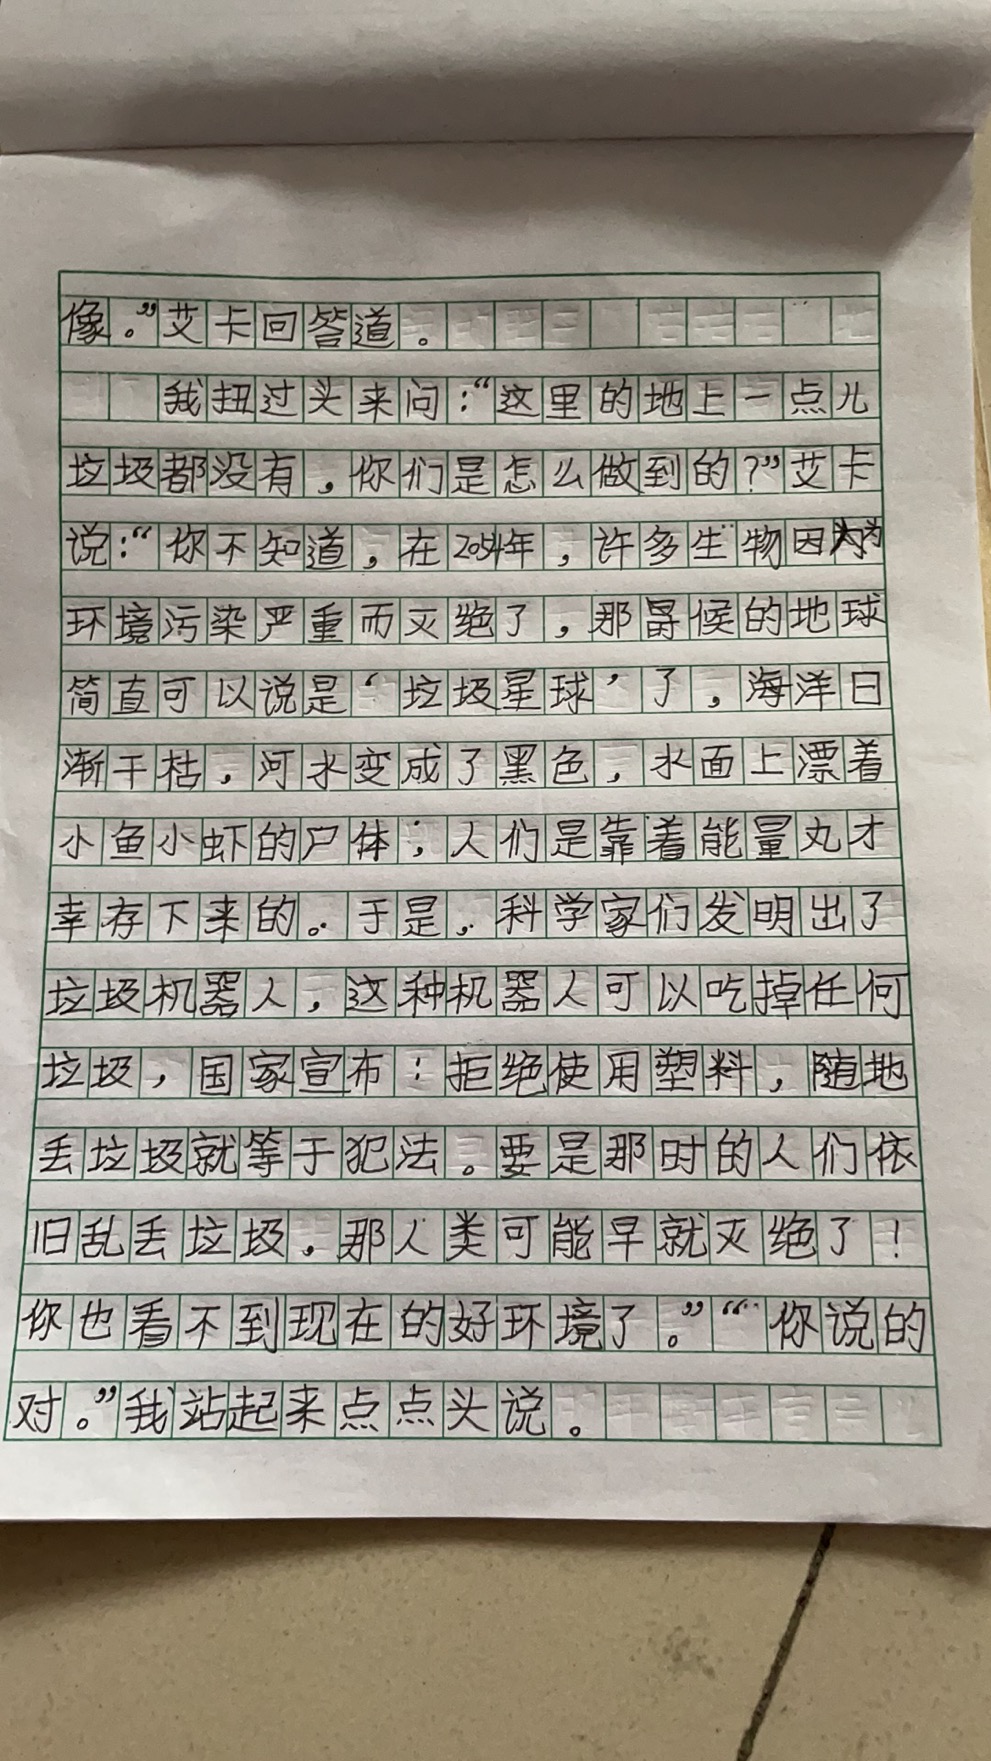 像。”艾卡回答道。
我扭过头来问：“这里的地上一点儿
垃圾都没有，你们是怎么做到的？”艾卡
说：“你不知道，在2054年，许多生物因为
环境污染严重而灭绝了，那候的地球
简直可以说是‘垃圾星球’了，海洋日
渐干枯，河水变成了黑色，水面上漂着
小鱼小虾的尸体；人们是靠着能量丸才
幸存下来的。于是，科学家们发明出了
垃圾机器人，这种机器人可以吃掉任何
垃圾，国家宣布：拒绝使用塑料，随地
丢垃圾就等于犯法。要是那时的人们依
旧乱丢垃圾，那人类可能早就灭绝了！
你也看不到现在的好环境了。”“你说的
对。”我站起来点点头说。